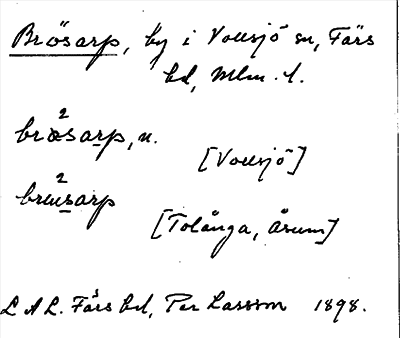 Brösarp, by i Vollsjö sn, Färs
hd, Mlm. l.
bræ²sarp, n.
[Vollsjö]
breu²sarp
[Tolånga, Åsum]
L A L. Färs hd, Per Larsson 1898.